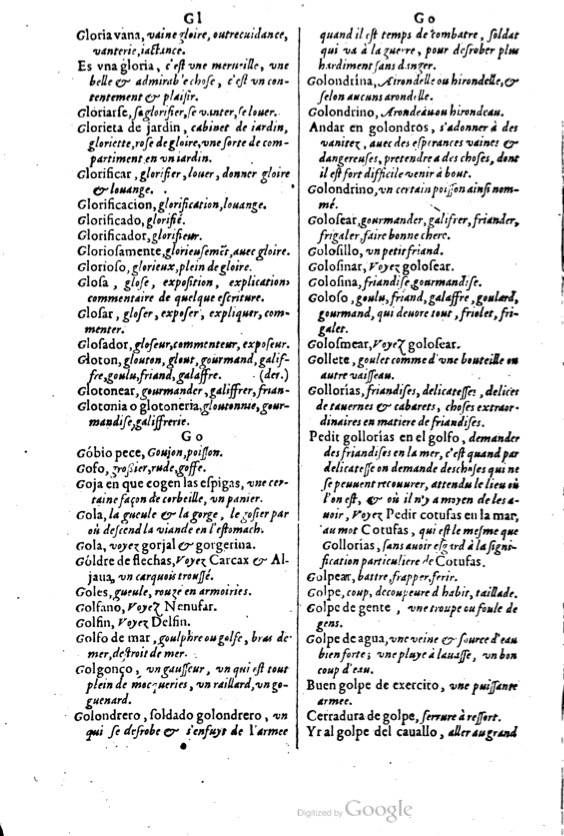 Gl
Gloria vana, vaine gloire, outrecuidance,
vanterie, iactance.
Es vna gloria, c'est vne merueille, vne
belle & admirab'e chose, c'est vn con-
tentement & plaisir.
Gloriarse, se glorifier, se vanter, se louer.
Glorieta de jardin, cabinet de iardin,
gloriette, rose de gloire, vne sorte de com-
partiment en vn iardin.
Glorificar, glorifier, louer, donner gloire
& louange.
Glorificacion, glorification, louange.
Glorificado, glorifié.
Glorificador, glorifieur.
Gloriosamente, glorieusemẽt, auec gloire.
Glorioso, glorieux, plein de gloire.
Glosa, glose, exposition, explication,
commentaire de quelque escriture.
Glosar, gloser, exposer, expliquer, com-
menter.
Glosador, gloseur, commenteur, exposeur.
Gloton, glouton, glout, gourmand, galif-
fre, goulu, friand, galaffre. (der.)
Glotonear, gourmander, galiffrer, frian-
Glotonia o glotoneria, gloutonnie, gour-
mandise, galiffrerie.
Go
Góbio pece, Goujon, poisson.
Gofo, grossier, rude, goffe.
Goja en que cogen las espigas, vne cer-
taine façon de corbeille, vn panier.
Gola, la gueule & la gorge, le gosier par
où descend la viande en l'estomach.
Gola, voyez gorjal & gorgerina.
Góldre de flechas, Voyez Carcax & Al-
jaua, vn carquois troussé.
Goles, gueule, rouge en armoiries.
Golfano, Voyez Nenufar.
Golfin, Voyez Delfin.
Golfo de mar, goulphre ou golfe, bras de
mer, destroit de mer.
Golgonço, vn gausseur, vn qui est tout
plein de mocqueries, vn raillard, vn go-
guenard.
Golondrero, soldado golondrero, vn
qui se desrobe & s'enfuyt de l'armee
Go
quand il est temps de combatre, soldat
qui va à la guerre, pour desrober plus
hardiment sans danger.
Golondrina, Airondelle ou hirondelle, &
selon aucuns arondelle.
Golondrino, Arondeau ou hirondeau.
Andar en golondros, s'adonner à des
vanitez, auec des esperances vaines &
dangereuses, pretendre a des choses, dont
il est fort difficile venir à bout.
Golondrino, vn certain poisson ainsi nom-
mé.
Golosear, gourmander, galifrer, friander,
frigaler, faire bonne chere.
Golosillo, vn petit friand.
Golosinar, Voyez golosear.
Golosina, friandise, gourmandise.
Goloso, goulu, friand, galaffre, goulard,
gourmand, qui deuore tout, friolet, fri-
galet.
Golosmear, Voyez golosear.
Gollete, goulet comme d'vne bouteille ou
autre vaisseau.
Gollorias, friandises, delicatesses, delices
de tauernes & cabarets, choses extraor-
dinaires en matiere de friandises.
Pedit gollorias en el golfo, demander
des friandises en la mer, c'est quand par
delicatesse on demande des choses qui ne
se peuuent recouurer, attendu le lieu où
l'on est, & où il n'y a moyen de les a-
uoir, Voyez Pedir cotufas en la mar,
au mot Cotufas, qui est le mesme que
Gollorias, sans auoir esgard à la signi-
fication particuliere de Cotufas.
Golpear, battre, frapper, ferir.
Golpe, coup, decoupeure d'habit, taillade.
Golpe de gente, vne troupe ou foule de
gens.
Golpe de agua, vne veine & source d'eau
bien forte; vne pluye à lauasse, vn bon
coup d'eau.
Buen golpe de exercito, vne puissante
armee.
Cerradura de golpe, serrure à ressort.
Yr al golpe del cauallo, aller au grand
Digitized by Google